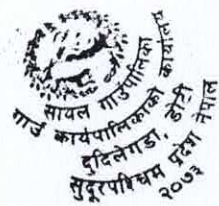 सायल गाउँपालिका
गाउँ कार्यपालिकाको कार्यालय
दुदिलेगडा, डोटी
सुदूरपश्चिम प्रदेश नेपाल
२०७३